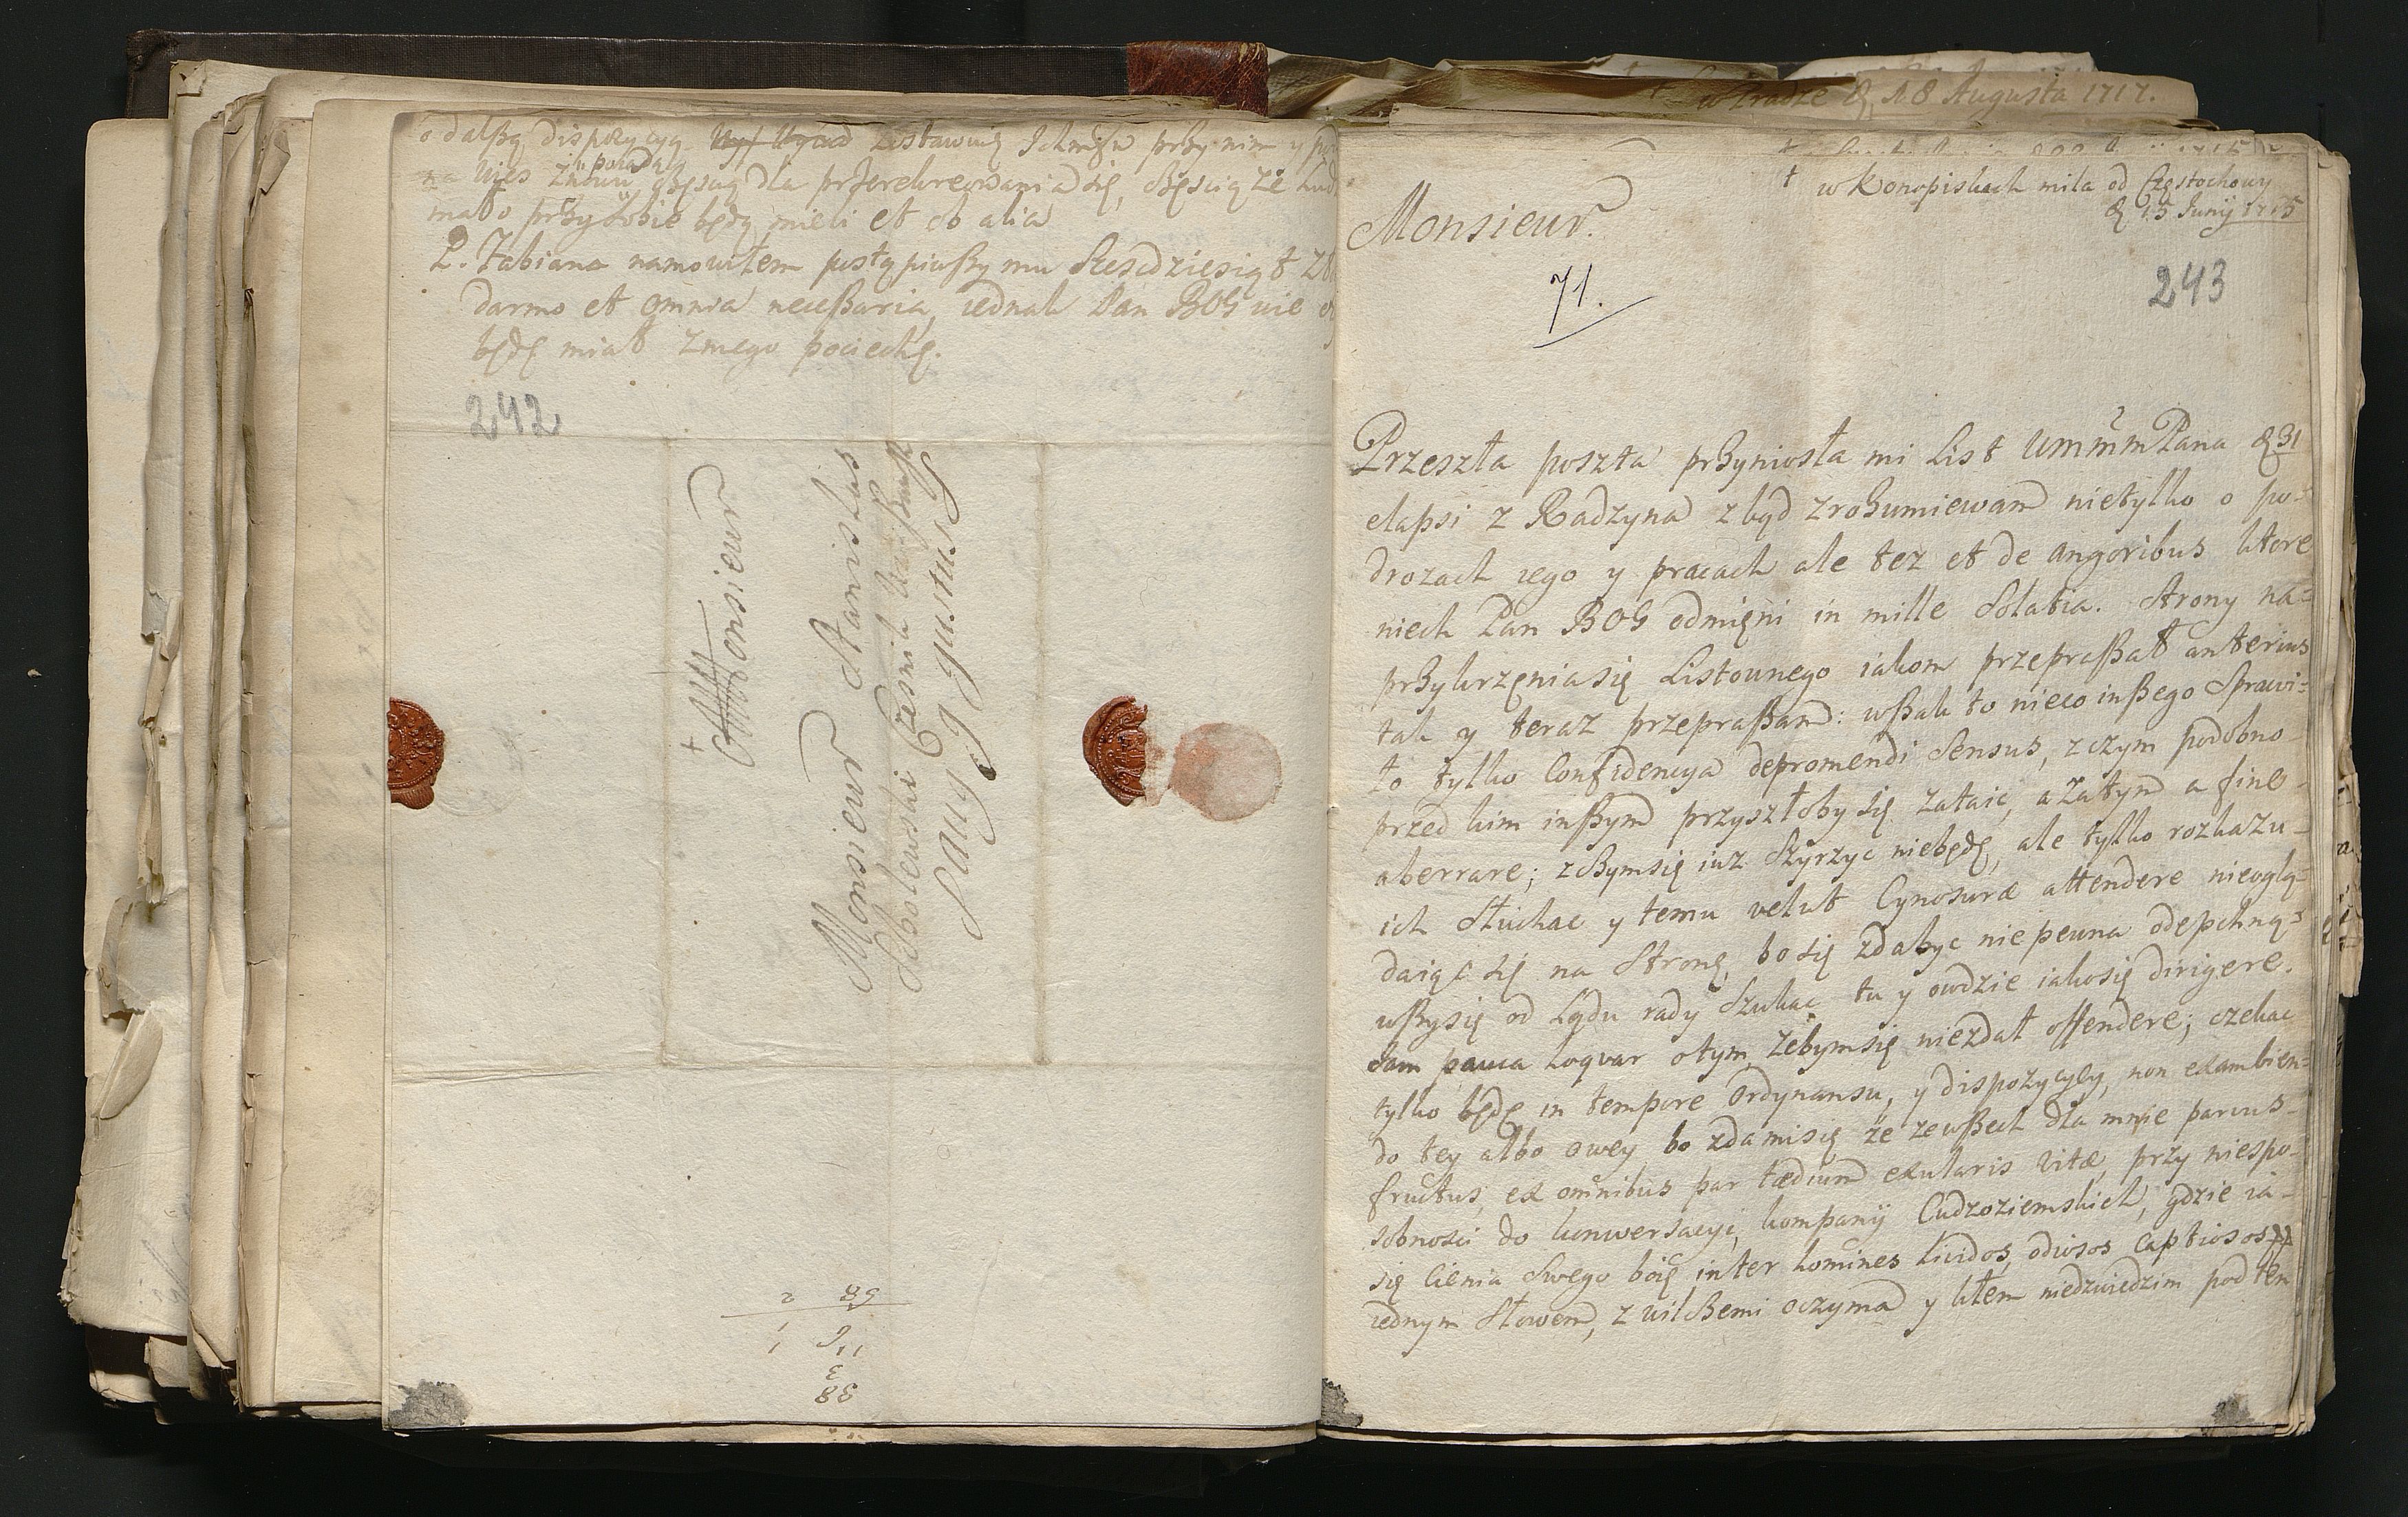 o dalßą dispozycyą. zostawuię Ichmśćiów przy nim y
na wieś znowu poiadą częścią dla przerekreowania się, częścią że
mało przy sobie będą mieli et ob alia
P. Fabiana namowiłem postąpiwßy mu sześćdziesiąt
darmo et omnia necessaria, iednak Pan BOG nie
będę miał z niego pociechę.
242
Monsieur
Monsieur Stanislas
Sobolewski Cześnik
Saug gustus
89 2
1
11 1
3
88
w Pradze d. 18 Augusta 1717.
† w Konopiskach mila od Częstochowy
d. 15 Junij 1715
Monsieur.
71.
243
Przeszła poszta przyniosła mi List UmmmPana d. 31
elapsi z Radzyna zkąd zrozumiewam nietylko o po-
drozach iego y pracach ale tez et de angoribus ktore
niech Pan BOG odmięni in mille solatia. Strony na=
przykrzęnia się Listownego iakom przepraßał anterius
tak y teraz przepraßam: wßak to nieco inßego sprawi=
to tylko Confidencya depromendi sensus, z czym podobno
przed kim inßym przyszłoby się zataić, a zatym a fine
aberrare; z czym się iuz szyrzyc niebędę, ale tylko rozkazu-
ich słuchac y temu velut Cynosuræ attendere nieoglą=
daiąc się na stronę, bo się zda byc nie pewna odepchną=
wßy się od Lądu rady szukac tu y owdzie iako się dirigere.
Sam pauca loqvar o tym, żebym się niezdał offendere; czekac
tylko będę in tempore Ordynansu, y dispozycyey, non exambien=
do tey albo owey bo zda mi się że ze wßech dla mnie parvus
fructus, ex omnibus par tædium exularis vitæ, przy niespo-
sobnosci do konwersacyi, kompanij Cudzoziemskich, gdzie ia
się cienia swego boię inter homines lividos, odiosos captiosos
iednym słowem, z wilczemi oczyma y kłem niedzwiedzim pod tem